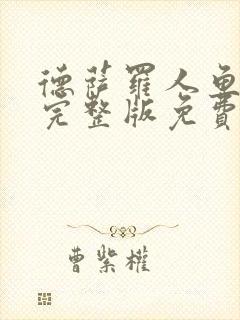 德萨罗人鱼
完整版免费
曹紫权